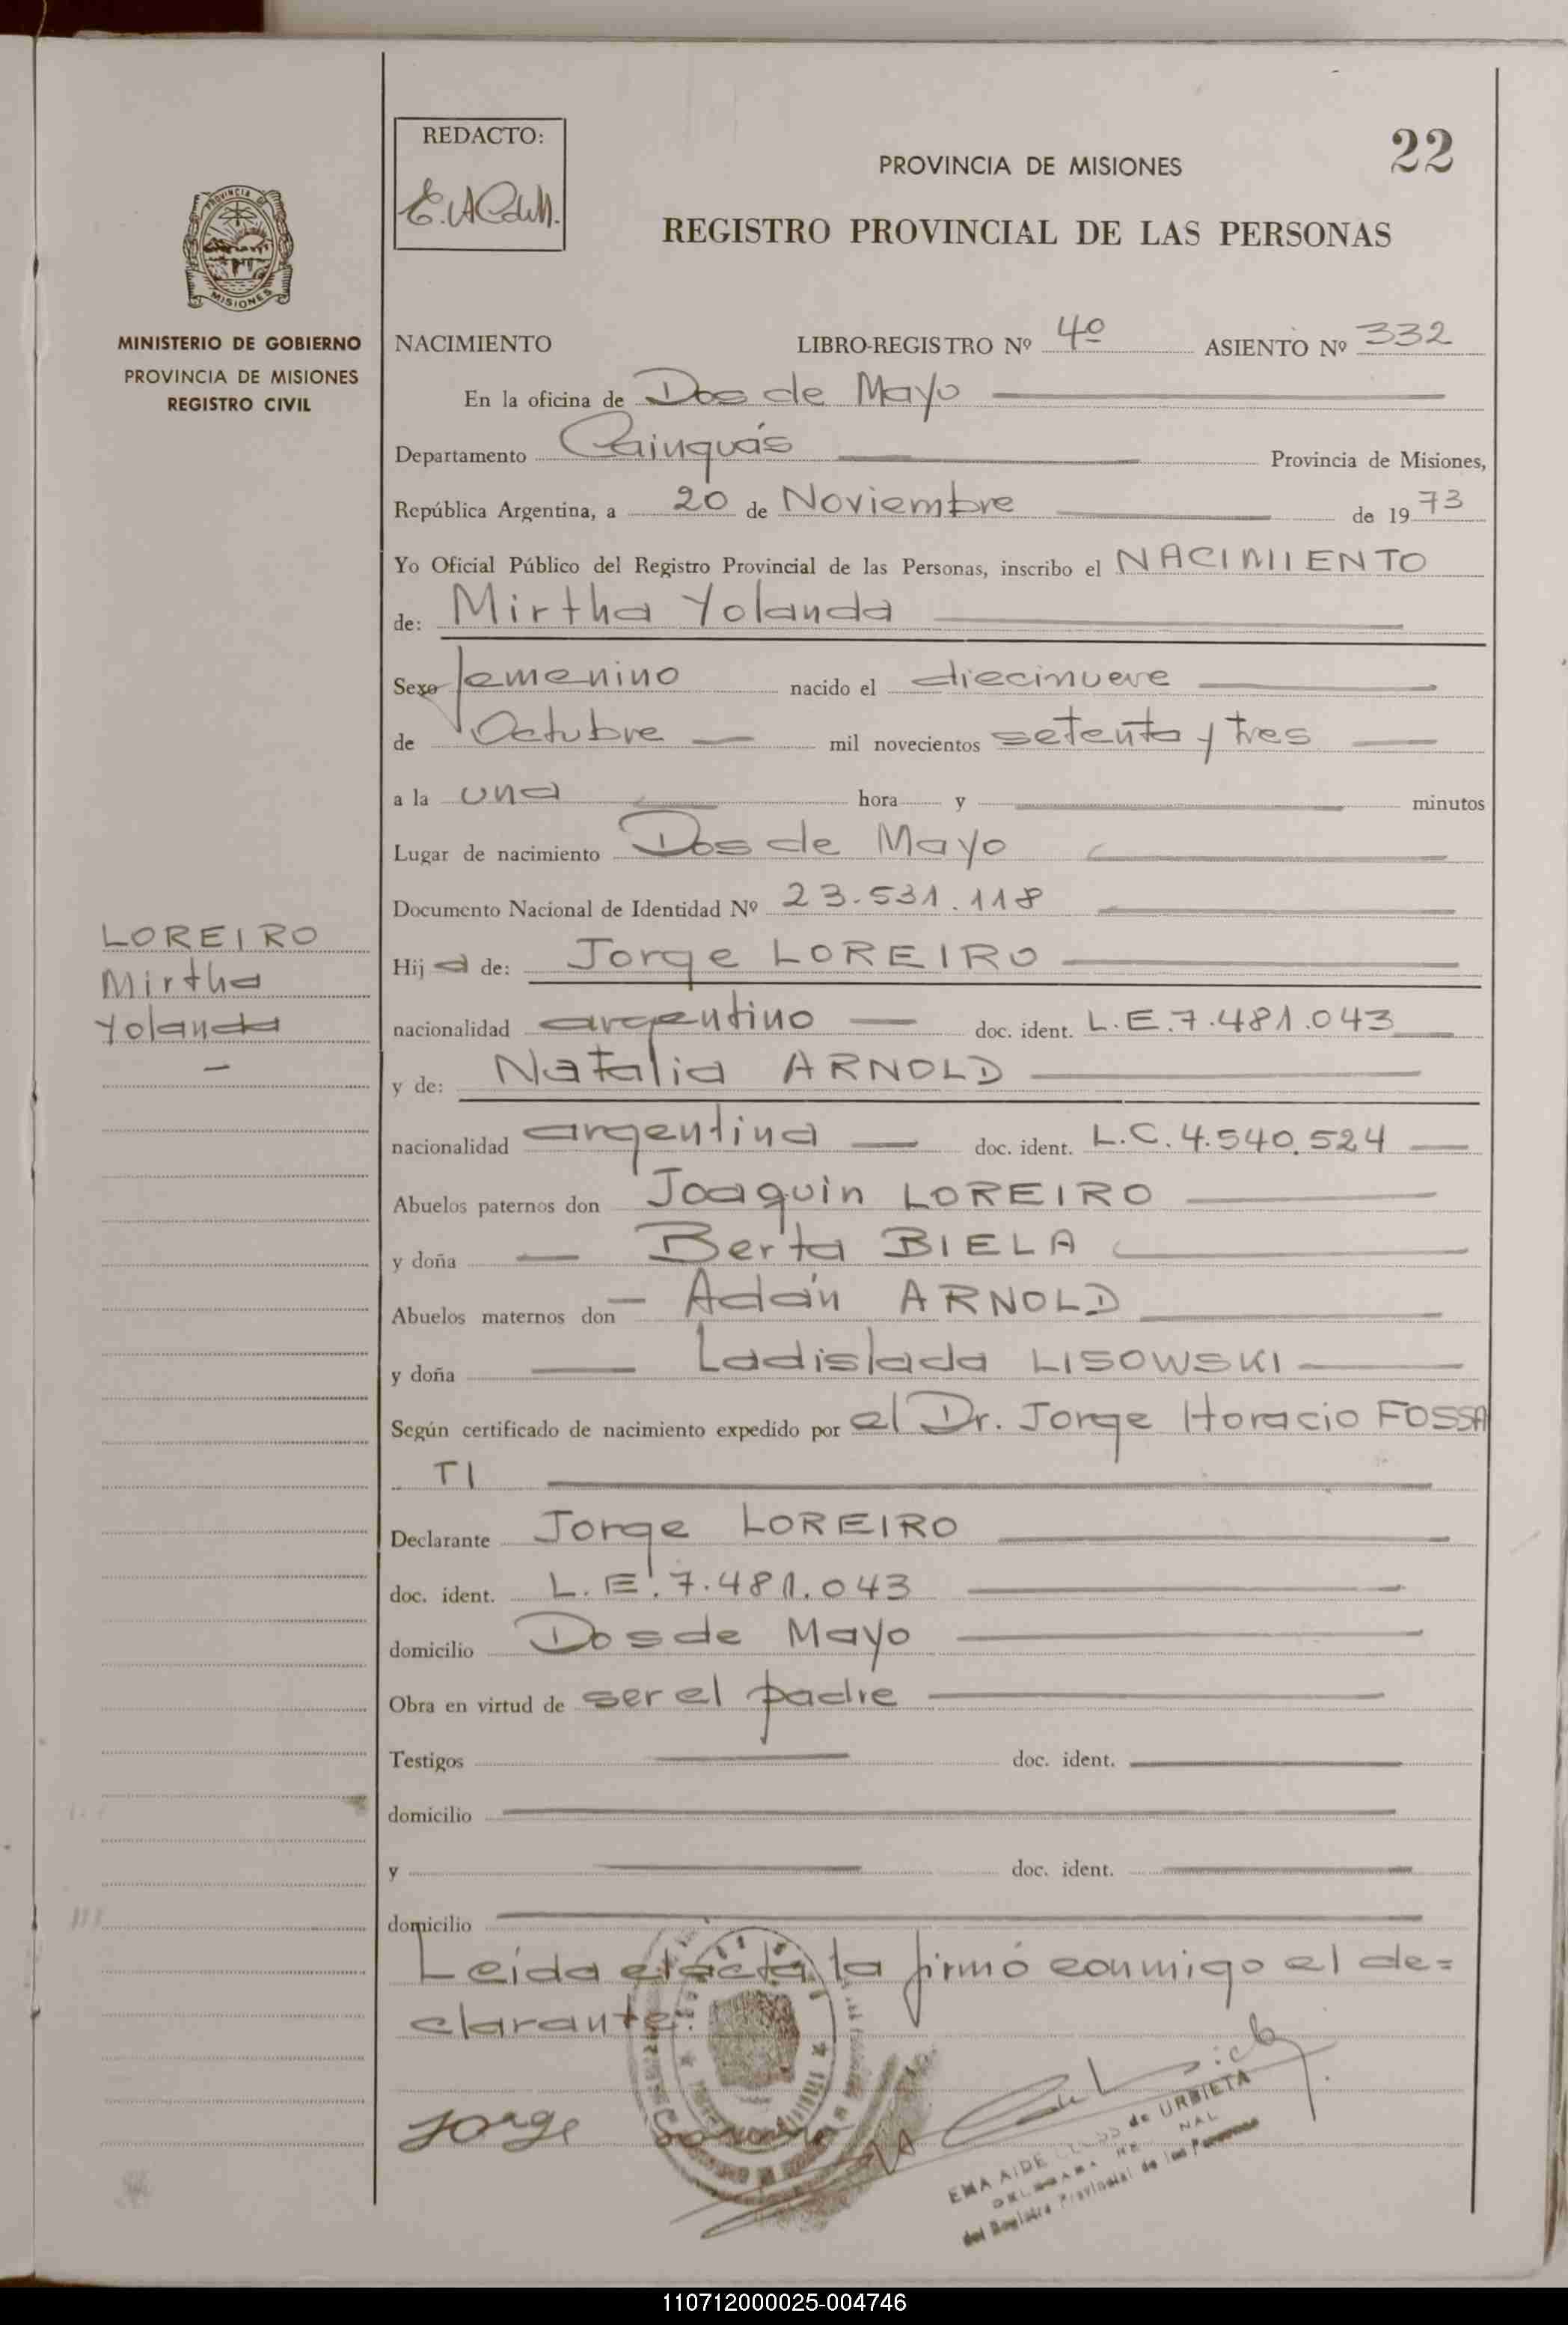 22
REDACTO:
PROVINCIA DE MISIONES
REGISTRO PROVINCIAL DE LAS PERSONAS
PROVINCIA DE
MISIONES
MINISTERIO DE GOBIERNO
PROVINCIA DE MISIONES
REGISTRO CIVIL
NACIMIENTO LIBRO-REGISTRO Nº 4º ASIENTO Nº 332
En la oficina de Dos de Mayo
Departamento Cainguás Provincia de Misiones,
República Argentina, a 20 de Noviembre de 1973
Yo Oficial Público del Registro Provincial de las Personas, inscribo el NACIMIENTO
de: Mirtha Yolanda
Sexo femenino nacido el diecinueve
de Octubre mil novecientos setenta y tres
a la una hora y minutos
Lugar de nacimiento Dos de Mayo
Documento Nacional de Identidad Nº 23.531.118
LOREIRO
Mirtha
Yolanda
Hija de: Jorge LOREIRO
nacionalidad argentino doc. ident. L.E.7.481.043
y de: Natalia ARNOLD
nacionalidad argentina doc. ident. L.C.4.540.524
Abuelos paternos don Joaquin LOREIRO
y doña Berta BIELA
Abuelos maternos don Adán ARNOLD
y doña Ladislada LISOWSKI
Según certificado de nacimiento expedido por el Dr. Jorge Horacio FOSSA
TI
Declarante Jorge LOREIRO
doc. ident. L.E.7.481.043
domicilio Dos de Mayo
Obra en virtud de ser el padre
Testigos doc. ident.
domicilio
y doc. ident.
domicilio
Leída el acta la firmó conmigo el de=
clarante.
Jorge
EMA AIDE de URBIETA
del Registro Provincial de las Personas
110712000025-004746